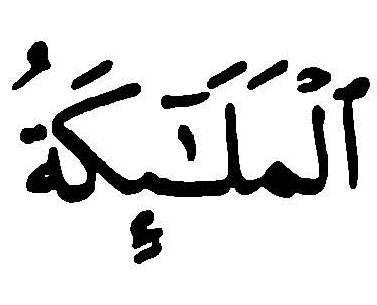 ٱلْمَلَٰٓئِكَةُ